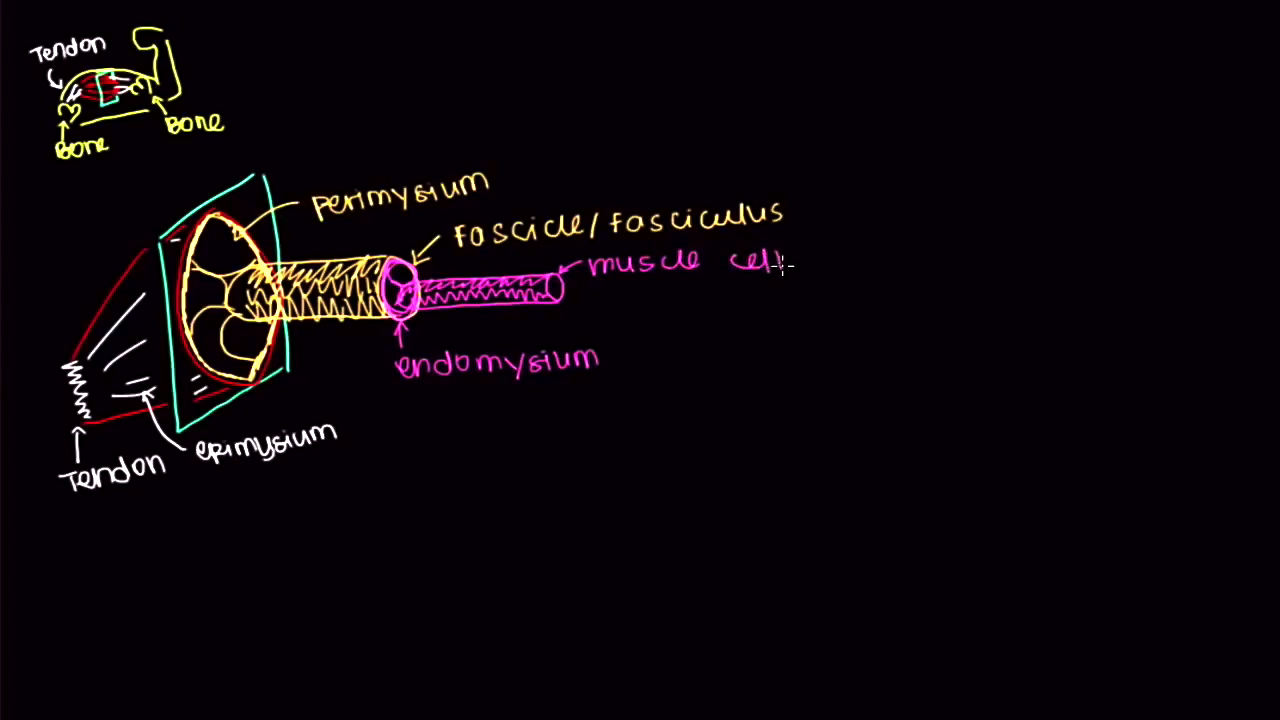 Tendon
Bone
Bone
perimysium
fascicle/fasciculus
muscle cell
endomysium
epimysium
Tendon